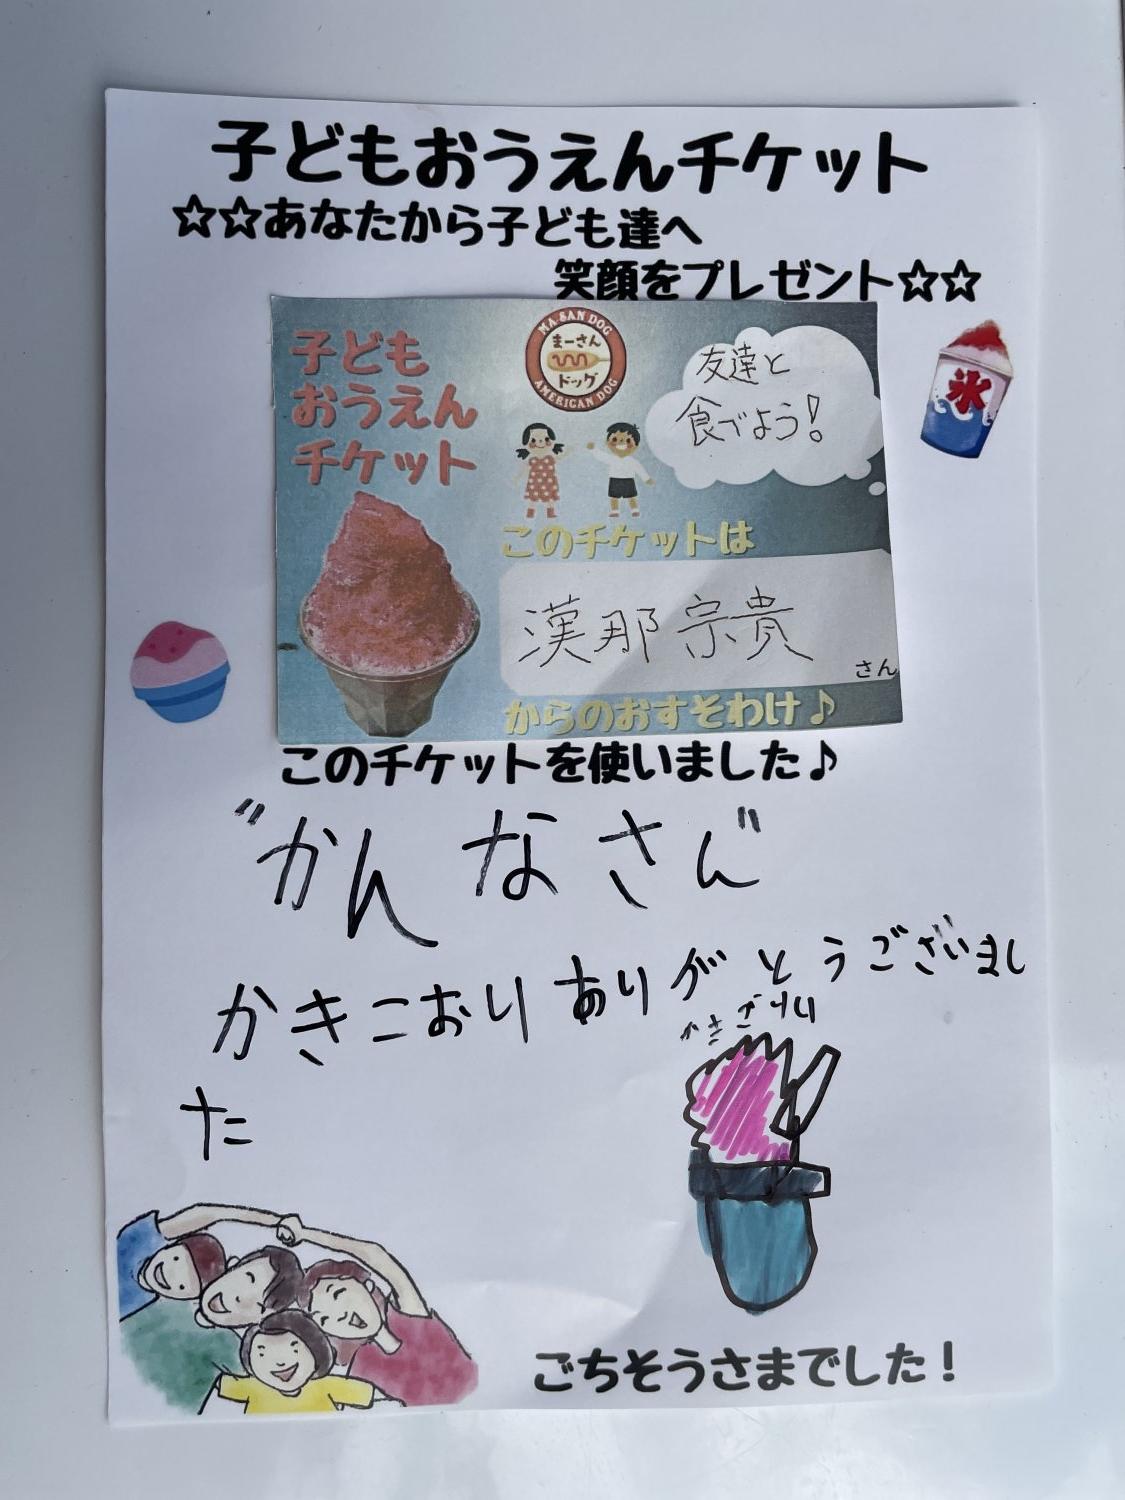 子どもおうえんチケット
☆☆あなたから子ども達へ
笑顔をプレゼント☆☆
氷
子ども
おうえん
チケット
MA-SAN DOG
まーさん
ドッグ
AMERICAN DOG
友達と
食べよう!
このチケットは
漢那宗貴
さん
からのおすそわけ♪
このチケットを使いました♪
"かんなさん"
かきこおりありがとうございまし
た
ごちそうさまでした！